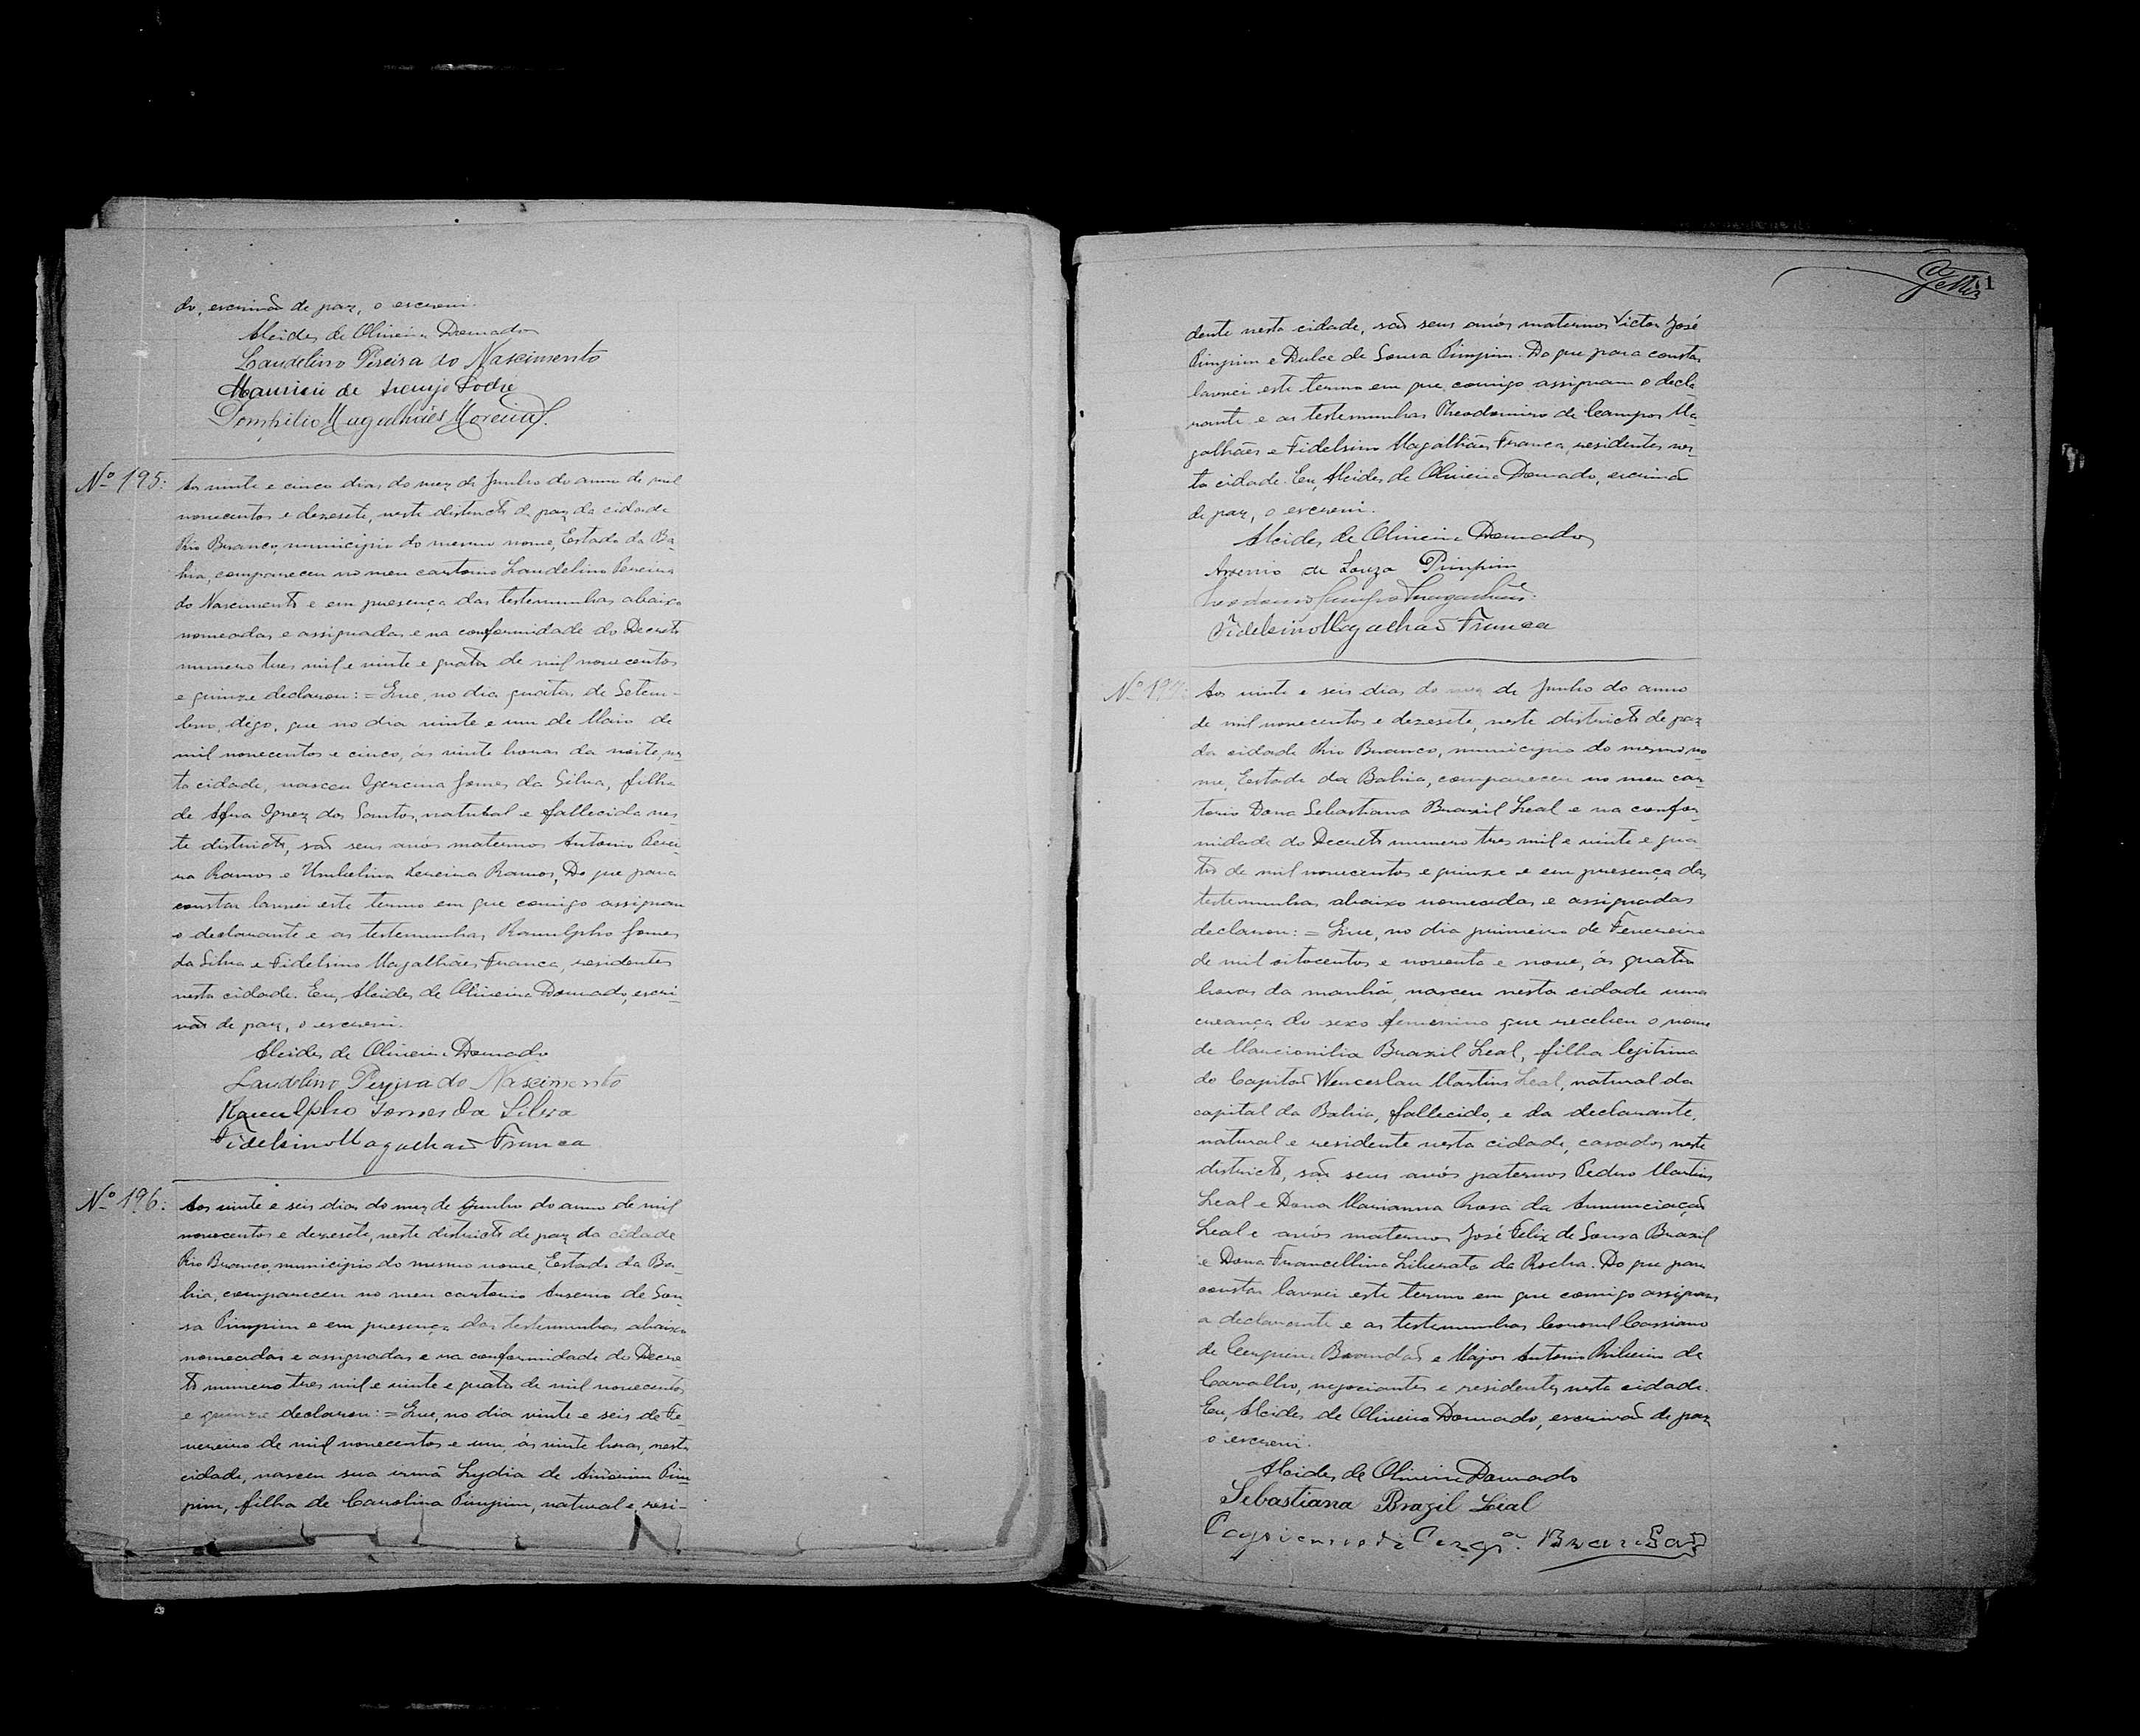 do, escrivão de paz, o escrevi.
Alcides de Oliveira Dourado
Laudelino Pereira do Nascimento
Mauricio de Araujo Sodré
Pompilio Magalhães Moreira.
Nº 195: Aos vinte e cinco dias do mez de Junho do anno de mil
novecentos e dezesete, neste districto de paz da cidade
Rio Branco, municipio do mesmo nome, Estado da Ba-
hia, compareceu no meu cartorio Laudelino Pereira
do Nascimento e em presença das testemunhas abaixo
nomeadas e assignadas e na conformidade do Decreto
numero tres mil e vinte e quatro de mil novecentos
e quinze declarou: = Que, no dia quatro de Setem-
bro, digo, que no dia vinte e um de Maio de
mil novecentos e cinco, ás vinte horas da noite, nes-
ta cidade, nasceu Gercina Gomes da Silva, filha
de Afra Ignez dos Santos, natural e fallecida nes-
te districto, são seus avós maternos Antonio Perei-
ra Ramos e Umbelina Pereira Ramos, Do que para
constar lavrei este termo em que comigo assignam
o declarante e as testemunhas Ranulpho Gomes
da Silva e Fidelsino Magalhães Franca, residentes
nesta cidade. Eu, Alcides de Oliveira Dourado, escri-
vão de paz, o escrevi.
Alcides de Oliveira Dourado
Laudelino Pereira do Nascimento
Ranulpho Gomes da Silva
Fidelsino Magalhães Franca
Nº 196: Aos vinte e seis dias do mez de Junho do anno de mil
novecentos e dezesete, neste districto de paz da cidade
Rio Branco, municipio do mesmo nome, Estado da Ba-
hia, compareceu no meu cartorio Arsenio de Sou-
sa Pimpim e em presença das testemunhas abaixo
nomeadas e assignadas e na conformidade do Decre-
to numero tres mil e vinte e quatro de mil novecentos
e quinze declarou: = Que, no dia vinte e seis de Fe-
vereiro de mil novecentos e um, ás vinte horas, nesta
cidade, nasceu sua irmã Lydia de Pim
pim, filha de Carolina Pimpim, natural e resi-
dente nesta cidade, são seus avós maternos Victor José
Pimpim e Dulce de Sousa Pimpim. Do que para constar
lavrei este termo em que comigo assignam o decla
rante e as testemunhas Theodomiro de Campos Ma-
galhães e Fidelsino Magalhães Franca, residentes nes-
ta cidade. Eu, Alcides de Oliveira Dourado, escrivão
de paz, o escrevi.
Alcides de Oliveira Dourado
Arsenio de Souza Pimpim
Fidelsino Magalhães Franca
Nº 197: Aos vinte e seis dias do mez de Junho do anno
de mil novecentos e dezesete, neste districto de paz
da cidade Rio Branco, municipio do mesmo no
me, Estado da Bahia, compareceu no meu car
torio Dona Sebastiana Brazil Leal e na confor
midade do Decreto numero tres mil e vinte e qua
tro de mil novecentos e quinze e em presença das
testemunhas abaixo nomeadas e assignadas
declarou: = Que, no dia primeiro de Fevereiro
de mil oitocentos e noventa e nove, ás quatro
horas da manhã, nasceu nesta cidade uma
creança do sexo femenino que recebeu o nome
de Marcionilia Brazil Leal, filha legitima
do Capitão Wenceslau Martins Leal, natural da
capital da Bahia, fallecido, e da declarante,
natural e residente nesta cidade, casados neste
districto, são seus avós paternos Pedro Martins
Leal e Dona Marianna Rosa da Annunciação
Leal e avós maternos José Felix de Sousa Brazil
e Dona Francellina Liberata da Rocha. Do que para
constar lavrei este termo em que comigo assignam
a declarante e as testemunhas Coronel Cassiano
de Cerqueira Brandão e Major Antonio Ribeiro de
Carvalho, negociantes e residentes nesta cidade.
Eu, Alcides de Oliveira Dourado, escrivão de paz
o escrevi.
Alcides de Oliveira Dourado
Sebastiana Brazil Leal
Cassiano de Cerqª. Brandão